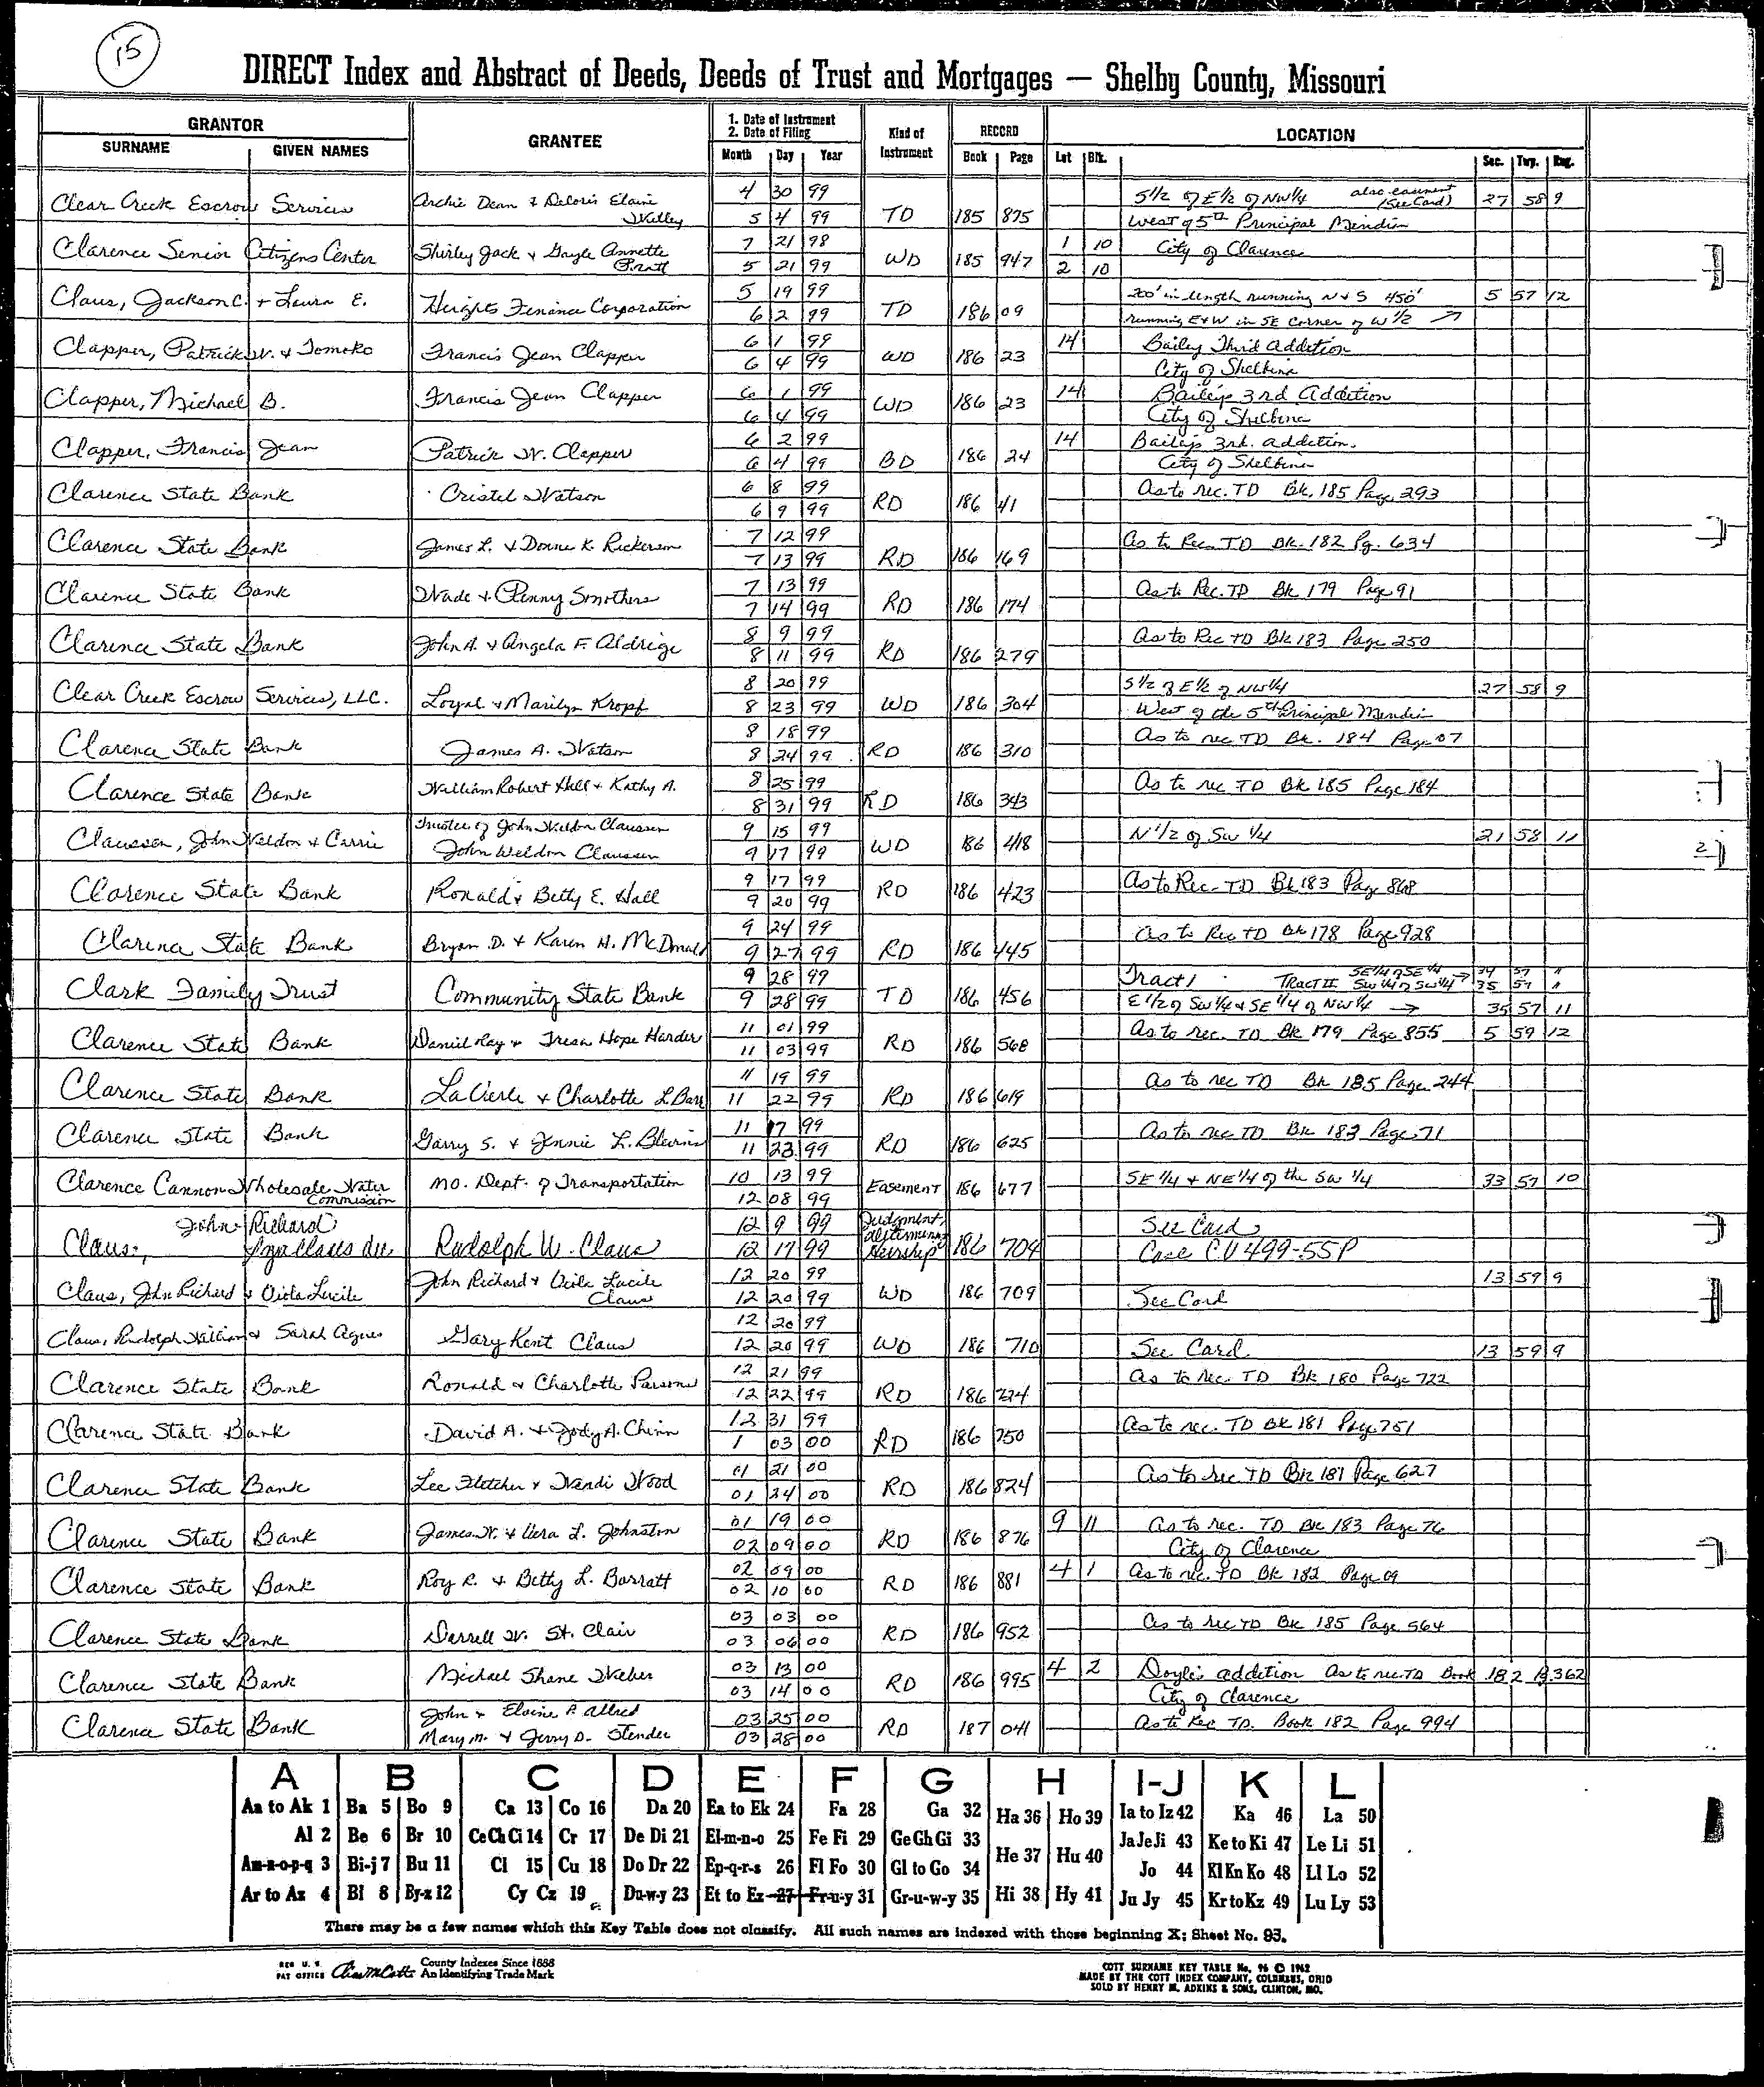 15
DIRECT Index and Abstract of Deeds, Deeds of Trust and Mortgages — Shelby County, Missouri
GRANTOR
SURNAME GIVEN NAMES
GRANTEE
1. Date of Instrument
2. Date of Filing
Month Day Year
Kind of Instrument
RECORD
Book Page
Lot Blk.
LOCATION
Sec. Twp. Rng.
Clear Creek Escrow Services Archie Dean & Deloris Elaine 4 30 99 TD 185 875 S 1/2 of E 1/2 of NW 1/4 also easement (See Card) 27 58 9
5 4 99 West of 5th Principal
Clarence Senior Citizens Center Shirley Jack & Gayle Annette Pratt 7 21 98 WD 185 947 1 10 City of Clarence
5 21 99 2 10
Claus, Jackson C. & Laura E. Heights Finance Corporation 5 19 99 TD 186 09 200' in length running N & S 450' 5 57 12
6 2 99 running E & W in SE Corner of W 1/2 →
Clapper, Patrick W. & Tomoko Francis Jean Clapper 6 1 99 WD 186 23 14 Bailey Third Addition
6 4 99 City of Shelbina
Clapper, Michael B. Francis Jean Clapper 6 1 99 WD 186 23 14 Bailey's 3rd Addition
6 4 99 City of Shelbina
Clapper, Francis Jean Patrick W. Clapper 6 2 99 BD 186 24 14 Bailey's 3rd. addition.
6 4 99 City of Shelbina
Clarence State Bank Cristel Watson 6 8 99 RD 186 41 As to rec. TD Bk. 185 Page 293
6 9 99
Clarence State Bank James L. & Donna K. Rickerson 7 12 99 RD 186 169 As to Rec. TD Bk. 182 Pg. 634
7 13 99
Clarence State Bank Wade & Penny Smothers 7 13 99 RD 186 174 As to Rec. TD Bk 179 Page 91
7 14 99
Clarence State Bank John A. & Angela F. Aldrige 8 9 99 RD 186 279 As to Rec TD Bk 183 Page 250
8 11 99
Clear Creek Escrow Services, LLC. Loyal & Marilyn Kropf 8 20 99 WD 186 304 S 1/2 of E 1/2 of NW 1/4 27 58 9
8 23 99 West of the 5th Principal
Clarence State Bank James A. Watson 8 18 99 RD 186 310 As to rec TD Bk. 184 Page 07
8 24 99
Clarence State Bank William Robert Hall & Kathy A. 8 25 99 RD 186 343 As to rec TD Bk 185 Page 184
8 31 99
Claussen, John Weldon & Carrie Trustee of John Weldon Claussen 9 15 99 WD 186 418 N 1/2 of SW 1/4 21 58 11
John Weldon Claussen 9 17 99
Clarence State Bank Ronald & Betty E. Hall 9 17 99 RD 186 423 As to Rec. TD Bk 183 Page 868
9 20 99
Clarence State Bank Bryan D. & Karen H. McDonald 9 24 99 RD 186 445 As to Rec TD Bk 178 Page 928
9 27 99
Clark Family Trust Community State Bank 9 28 99 TD 186 456 Tract 1 TRACT II SE 1/4 of SE 1/4 → 34 57 "
SW 1/4 of SW 1/4 35 57 "
9 28 99 E 1/2 of SW 1/4 & SE 1/4 of NW 1/4 → 35 57 11
Clarence State Bank Daniel Ray & Tresa Hope Harder 11 01 99 RD 186 568 As to rec. TD Bk 179 Page 855 5 59 12
11 03 99
Clarence State Bank & Charlotte L. 11 19 99 RD 186 619 As to rec TD Bk 185 Page 244
11 22 99
Clarence State Bank Garry S. & Jennie L. Blevins 11 17 99 RD 186 625 As to rec TD Bk 183 Page 71
11 23 99
Clarence Cannon Wholesale Water Commission Mo. Dept. of Transportation 10 13 99 Easement 186 677 SE 1/4 & NE 1/4 of the SW 1/4 33 57 10
12 08 99
Claus, John Richard Rudolph W. Claus 12 9 99 Judgment, determining Heirship 186 704 See Card
12 17 99 Case CV499-55P
Claus, John Richard & Viola Lucile John Richard & Viola Lucile Claus 12 20 99 WD 186 709 13 59 9
12 20 99 See Card
Claus, Rudolph William & Sarah Agnes Gary Kent Claus 12 20 99 WD 186 710
12 20 99 See Card 13 59 9
Clarence State Bank Ronald & Charlotte Parsons 12 21 99 RD 186 724 As to rec. TD Bk 180 Page 722
12 22 99
Clarence State Bank David A. & Jody A. Chinn 12 31 99 RD 186 750 As to rec. TD Bk 181 Page 751
1 03 00
Clarence State Bank Lee Fletcher & Wendi Wood 01 21 00 RD 186 824 As to rec TD Bk 181 Page 627
01 24 00
Clarence State Bank James W. & Vera L. Johnston 01 19 00 RD 186 876 9 11 As to rec. TD Bk 183 Page 76
02 09 00 City of Clarence
Clarence State Bank Roy R. & Betty L. Barratt 02 09 00 RD 186 881 4 1 As to rec. TD Bk 182 Page 09
02 10 00
Clarence State Bank Darrell W. St. Clair 03 03 00 RD 186 952 As to rec TD Bk 185 Page 564
03 06 00
Clarence State Bank Michael Shane Weber 03 13 00 RD 186 995 4 2 Doyle's addition As to rec. TD Book 182 P. 362
03 14 00 City of Clarence
Clarence State Bank John & Elaine P. Allred 03 25 00 RD 187 041 As to Rec TD. Book 182 Page 994
Mary M. & Jerry D. Stender 03 28 00
A B C D E F G H I-J K L
Aa to Ak 1 Ba 5 Bo 9 Ca 13 Co 16 Da 20 Ea to Ek 24 Fa 28 Ga 32 Ha 36 Ho 39 Ia to Iz 42 Ka 46 La 50
Al 2 Be 6 Br 10 Ce Ch Ci 14 Cr 17 De Di 21 El-m-n-o 25 Fe Fi 29 Ge Gh Gi 33 He 37 Hu 40 Ja Je Ji 43 Ke to Ki 47 Le Li 51
Am-n-o-p-q 3 Bi-j 7 Bu 11 Cl 15 Cu 18 Do Dr 22 Ep-q-r-s 26 Fl Fo 30 Gl to Go 34 Jo 44 Kl Kn Ko 48 Ll Lo 52
Ar to Az 4 Bl 8 By-z 12 Cy Cz 19 Du-w-y 23 Et to Ez 27 Fr-u-y 31 Gr-u-w-y 35 Hi 38 Hy 41 Ju Jy 45 Kr to Kz 49 Lu Ly 53
There may be a few names which this Key Table does not classify. All such names are indexed with those beginning X; Sheet No. 93.
REG U. S. PAT OFFICE County Indexes Since 1888
An Identifying Trade Mark
COTT SURNAME KEY TABLE No. 96 © 1962
MADE BY THE COTT INDEX COMPANY, COLUMBUS, OHIO
SOLD BY HENRY M. ADKINS & SONS, CLINTON, MO.